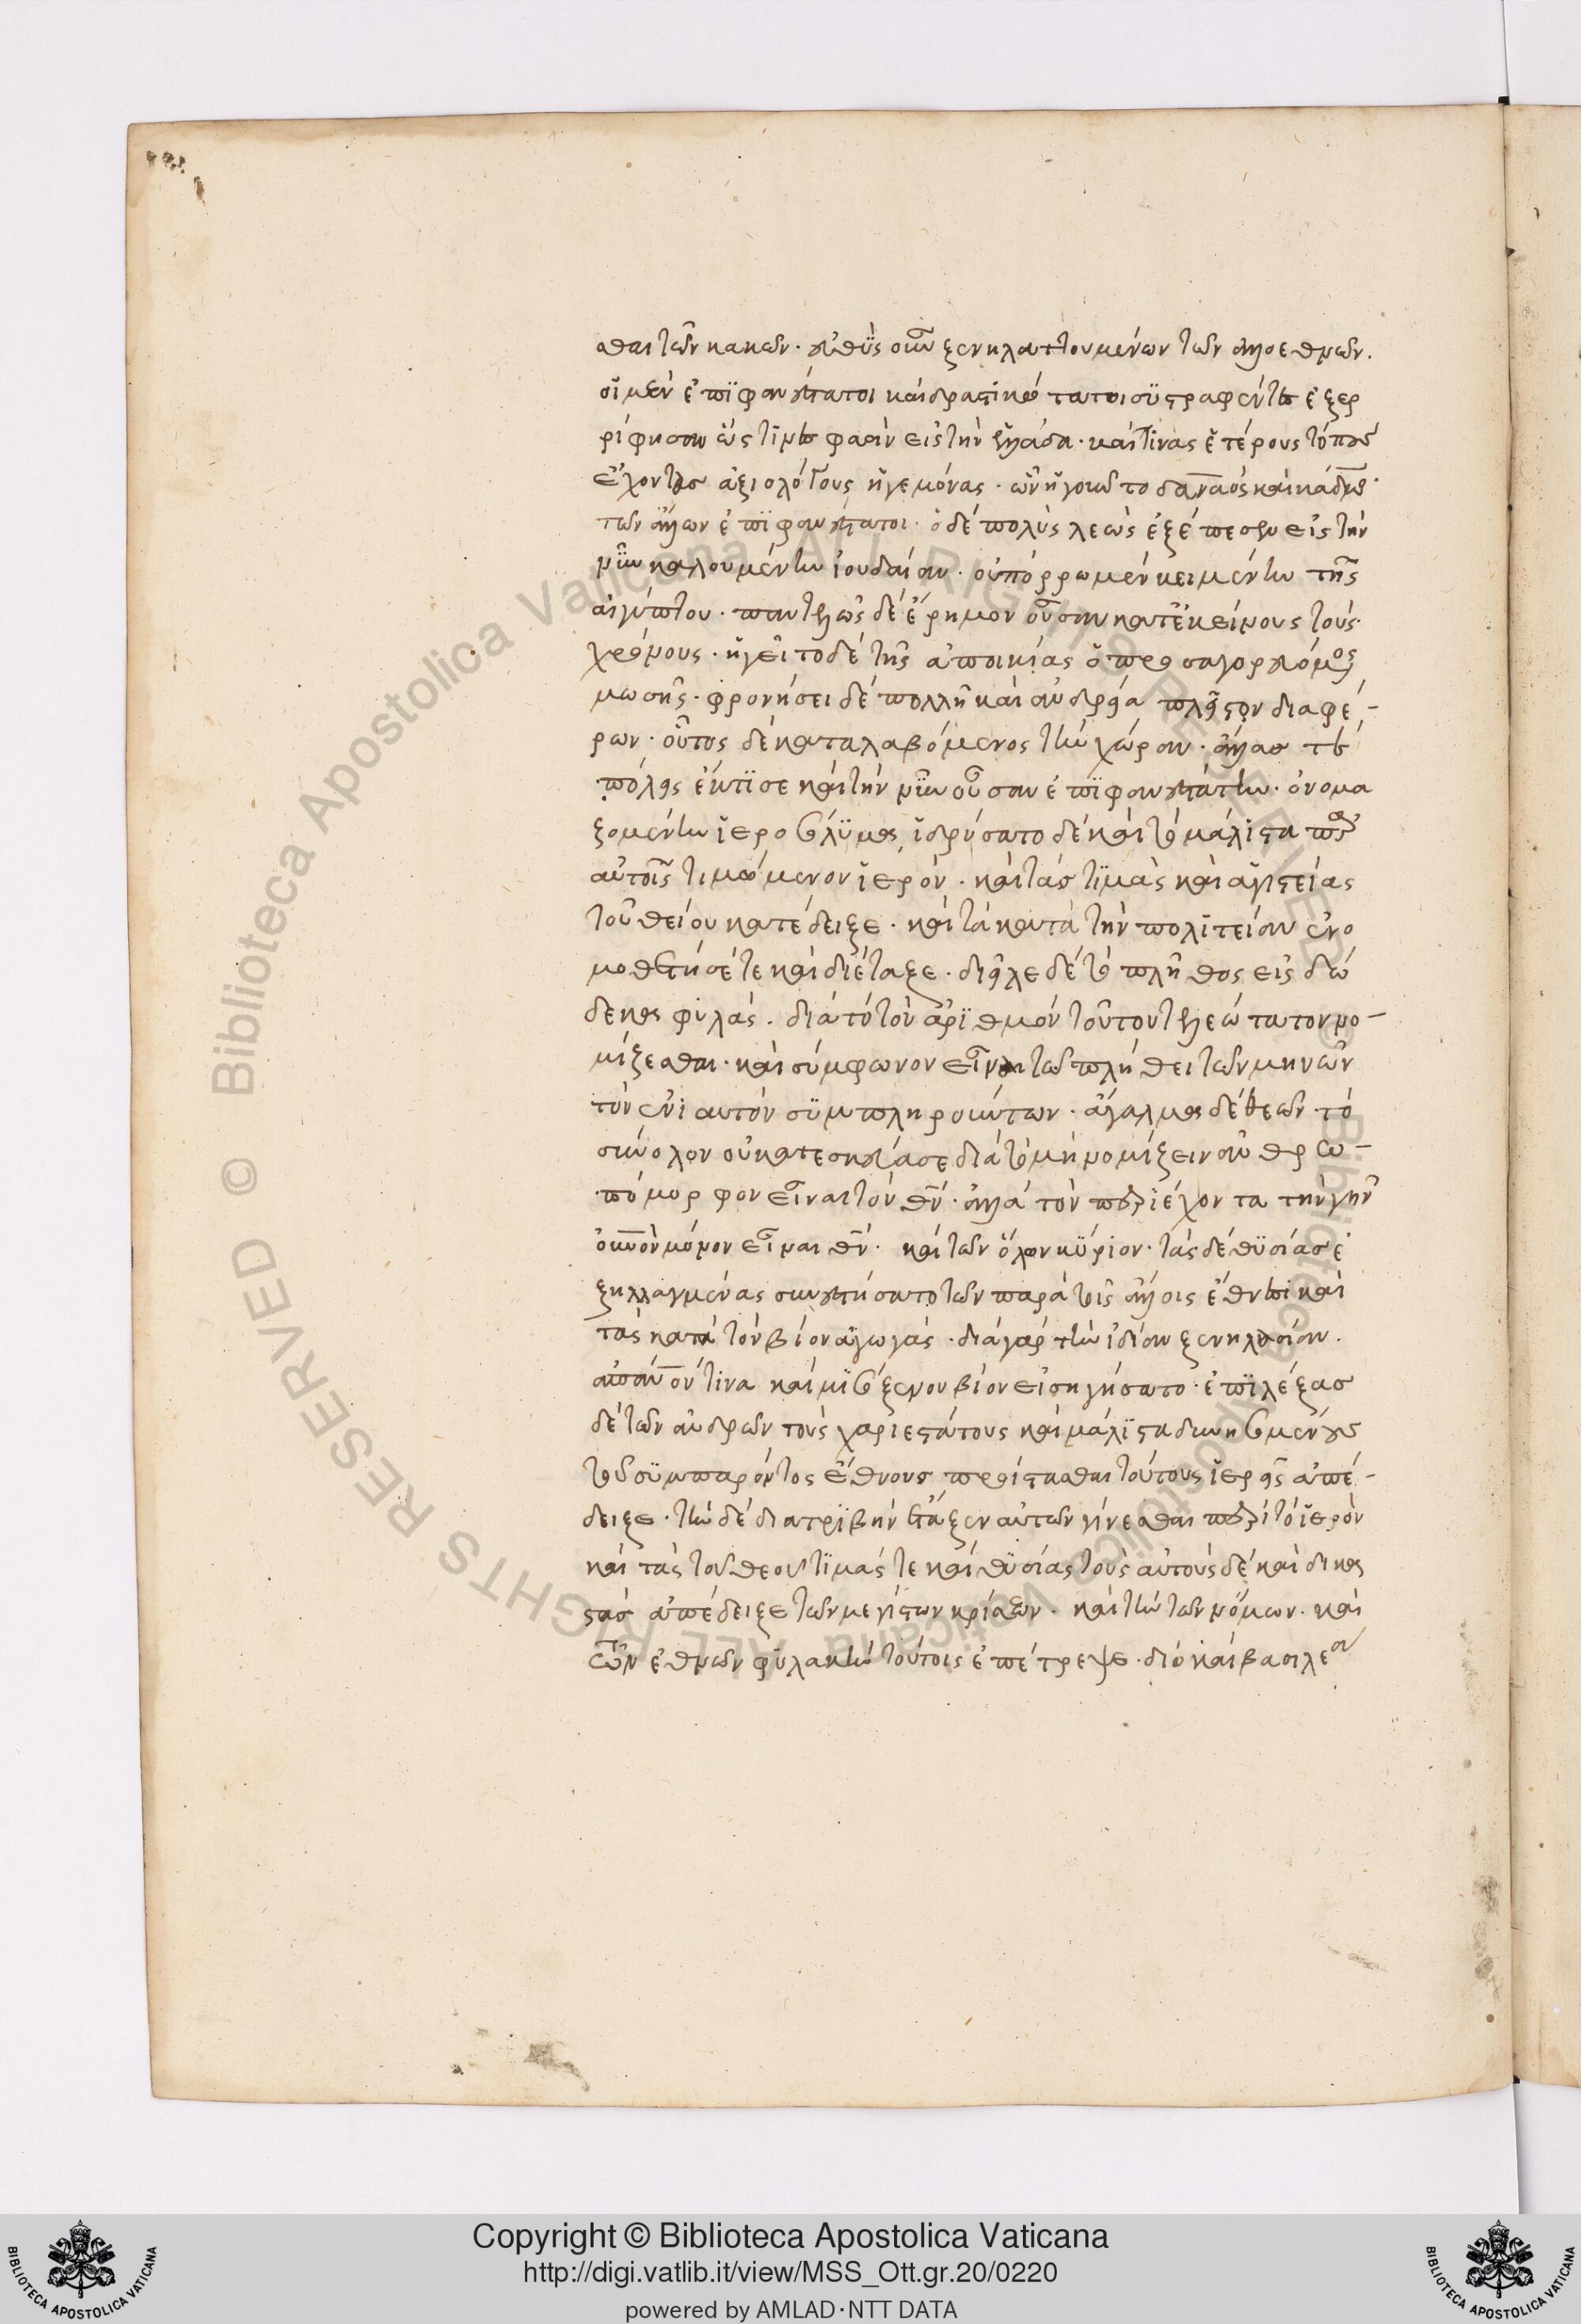 σθαι τῶν κακῶν. εὐθὺς οὖν ξενηλατουμένων τῶν ἀλλοεθνῶν.
οἱ μὲν ἐπιφανέστατοι καὶ δραστικώτατοι συστραφέντες ἐξερ
ρίφησαν ὥς τινες φασὶν εἰς τὴν ἑλλάδα. καί τινας ἑτέρους τόπους
ἔχοντες ἀξιολόγους ἡγεμόνας. ὧν ἡγοῦντο δαναὸς καὶ κάδμος.
τῶν ἄλλων ἐπιφανέστατοι. ὁ δὲ πολὺς λεὼς ἐξέπεσεν εἰς τὴν
νῦν καλουμένην ἰουδαίαν. οὐ πόρρω μὲν κειμένην τῆς
αἰγύπτου. παντελῶς δὲ ἔρημον οὖσαν κατ' ἐκείνους τοὺς
χρόνους. ἡγεῖτο δὲ τῆς ἀποικίας ὁ προσαγορευόμενος
μωσῆς. φρονήσει δὲ πολλῇ καὶ ἀνδρείᾳ πλεῖστον διαφέ-
ρων. οὗτος δὲ καταλαβόμενος τὴν χώραν. ἄλλας τε
πόλεις ἔκτισε καὶ τὴν νῦν οὖσαν ἐπιφανεστάτην. ὀνομα
ζομένην ἱεροσόλυμα, ἱδρύσατο δὲ καὶ τὸ μάλιστα παρ'
αὐτοῖς τιμώμενον ἱερόν. καὶ τὰς τιμὰς καὶ ἁγιστείας
τοῦ θείου κατέδειξε. καὶ τὰ κατὰ τὴν πολιτείαν ἐνο
μοθέτησέ τε καὶ διέταξε. διεῖλε δὲ τὸ πλῆθος εἰς δώ
δεκα φυλάς. διὰ τὸ τὸν ἀριθμὸν τοῦτον τελεώτατον νο-
μίζεσθαι. καὶ σύμφωνον εἶναι τῶ πλήθει τῶν μηνῶν
τῶν ἐνιαυτὸν συμπληρούντων. ἄγαλμα δὲ θεῶν τὸ
σύνολον οὐ κατεσκεύασε διὰ τὸ μὴ νομίζειν ἀνθρω-
πόμορφον εἶναι τὸν θν. ἀλλὰ τὸν περιέχοντα τὴν γῆν
οὐνον μόνον εἶναι θν. καὶ τῶν ὅλων κύριον. τὰς δὲ θυσίας ἐ
ξηλλαγμένας συνεστήσατο τῶν παρὰ τοῖς ἄλλοις ἔθνεσι καὶ
τὰς κατὰ τὸν βίον ἀγωγάς. διὰ γὰρ τὴν ἰδίαν ξενηλασίαν.
ἀπάνον τινα καὶ μισόξενον βίον εἰσηγήσατο. ἐπιλέξας
δὲ τῶν ἀνδρῶν τοὺς χαριεστάτους καὶ μάλιστα δυνησομένους
τοῦ συμπαρόντος ἔθνους προΐστασθαι τούτους ἱερεῖς ἀπέ-
δειξε. τὴν δὲ διατριβὴν ἔταξεν αὐτῶν γίνεσθαι περὶ τὸ ἱερὸν
καὶ τὰς τοῦ θεοῦ τιμάς τε καὶ θυσίας τοὺς αὐτοὺς δὲ καὶ δικα
στὰς ἀπέδειξε τῶν μεγίστων κρίσεων. καὶ τὴν τῶν νόμων. καὶ
τῶν ἐθνῶν φυλακὴν τούτοις ἐπέτρεψε. διὸ καὶ βασιλέα
Copyright © Biblioteca Apostolica Vaticana
http://digi.vatlib.it/view/MSS_Ott.gr.20/0220
powered by AMLAD·NTT DATA